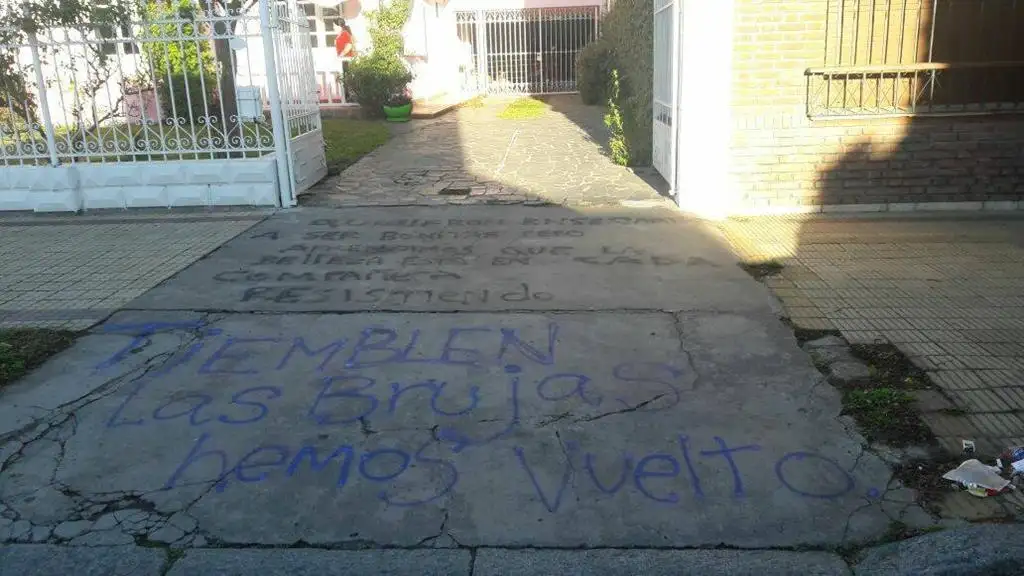 A SER BONITAS PERO
APRENDIMOS QUE LA
BELLEZA ES EN CADA
COMPAÑERA
RESISTIENDO
TIEMBLEN
Las Brujas
hemos Vuelto.